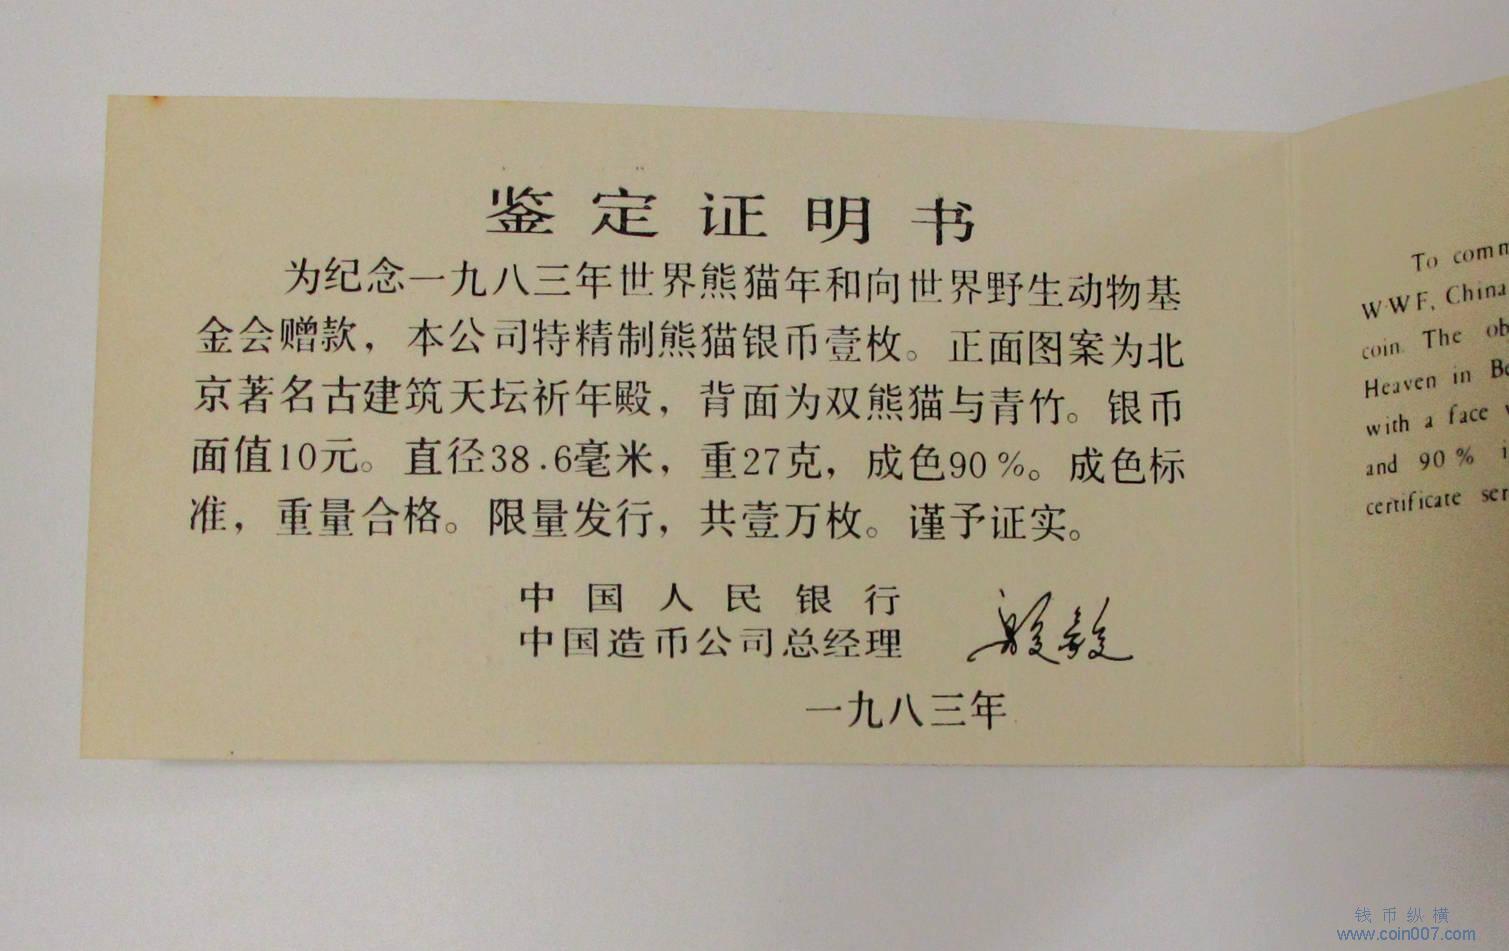 鉴定证明书
为纪念一九八三年世界熊猫年和向世界野生动物基
金会赠款，本公司特精制熊猫银币壹枚。正面图案为北
京著名古建筑天坛祈年殿，背面为双熊猫与青竹。银币
面值10元。直径38.6毫米，重27克，成色90%。成色标
准，重量合格。限量发行，共壹万枚。谨予证实。
中国人民银行
中国造币公司总经理
一九八三年
To
WWF, China
coin. The
Heaven in
with a face
and 90%
certificate
钱币纵横
www.coin007.com